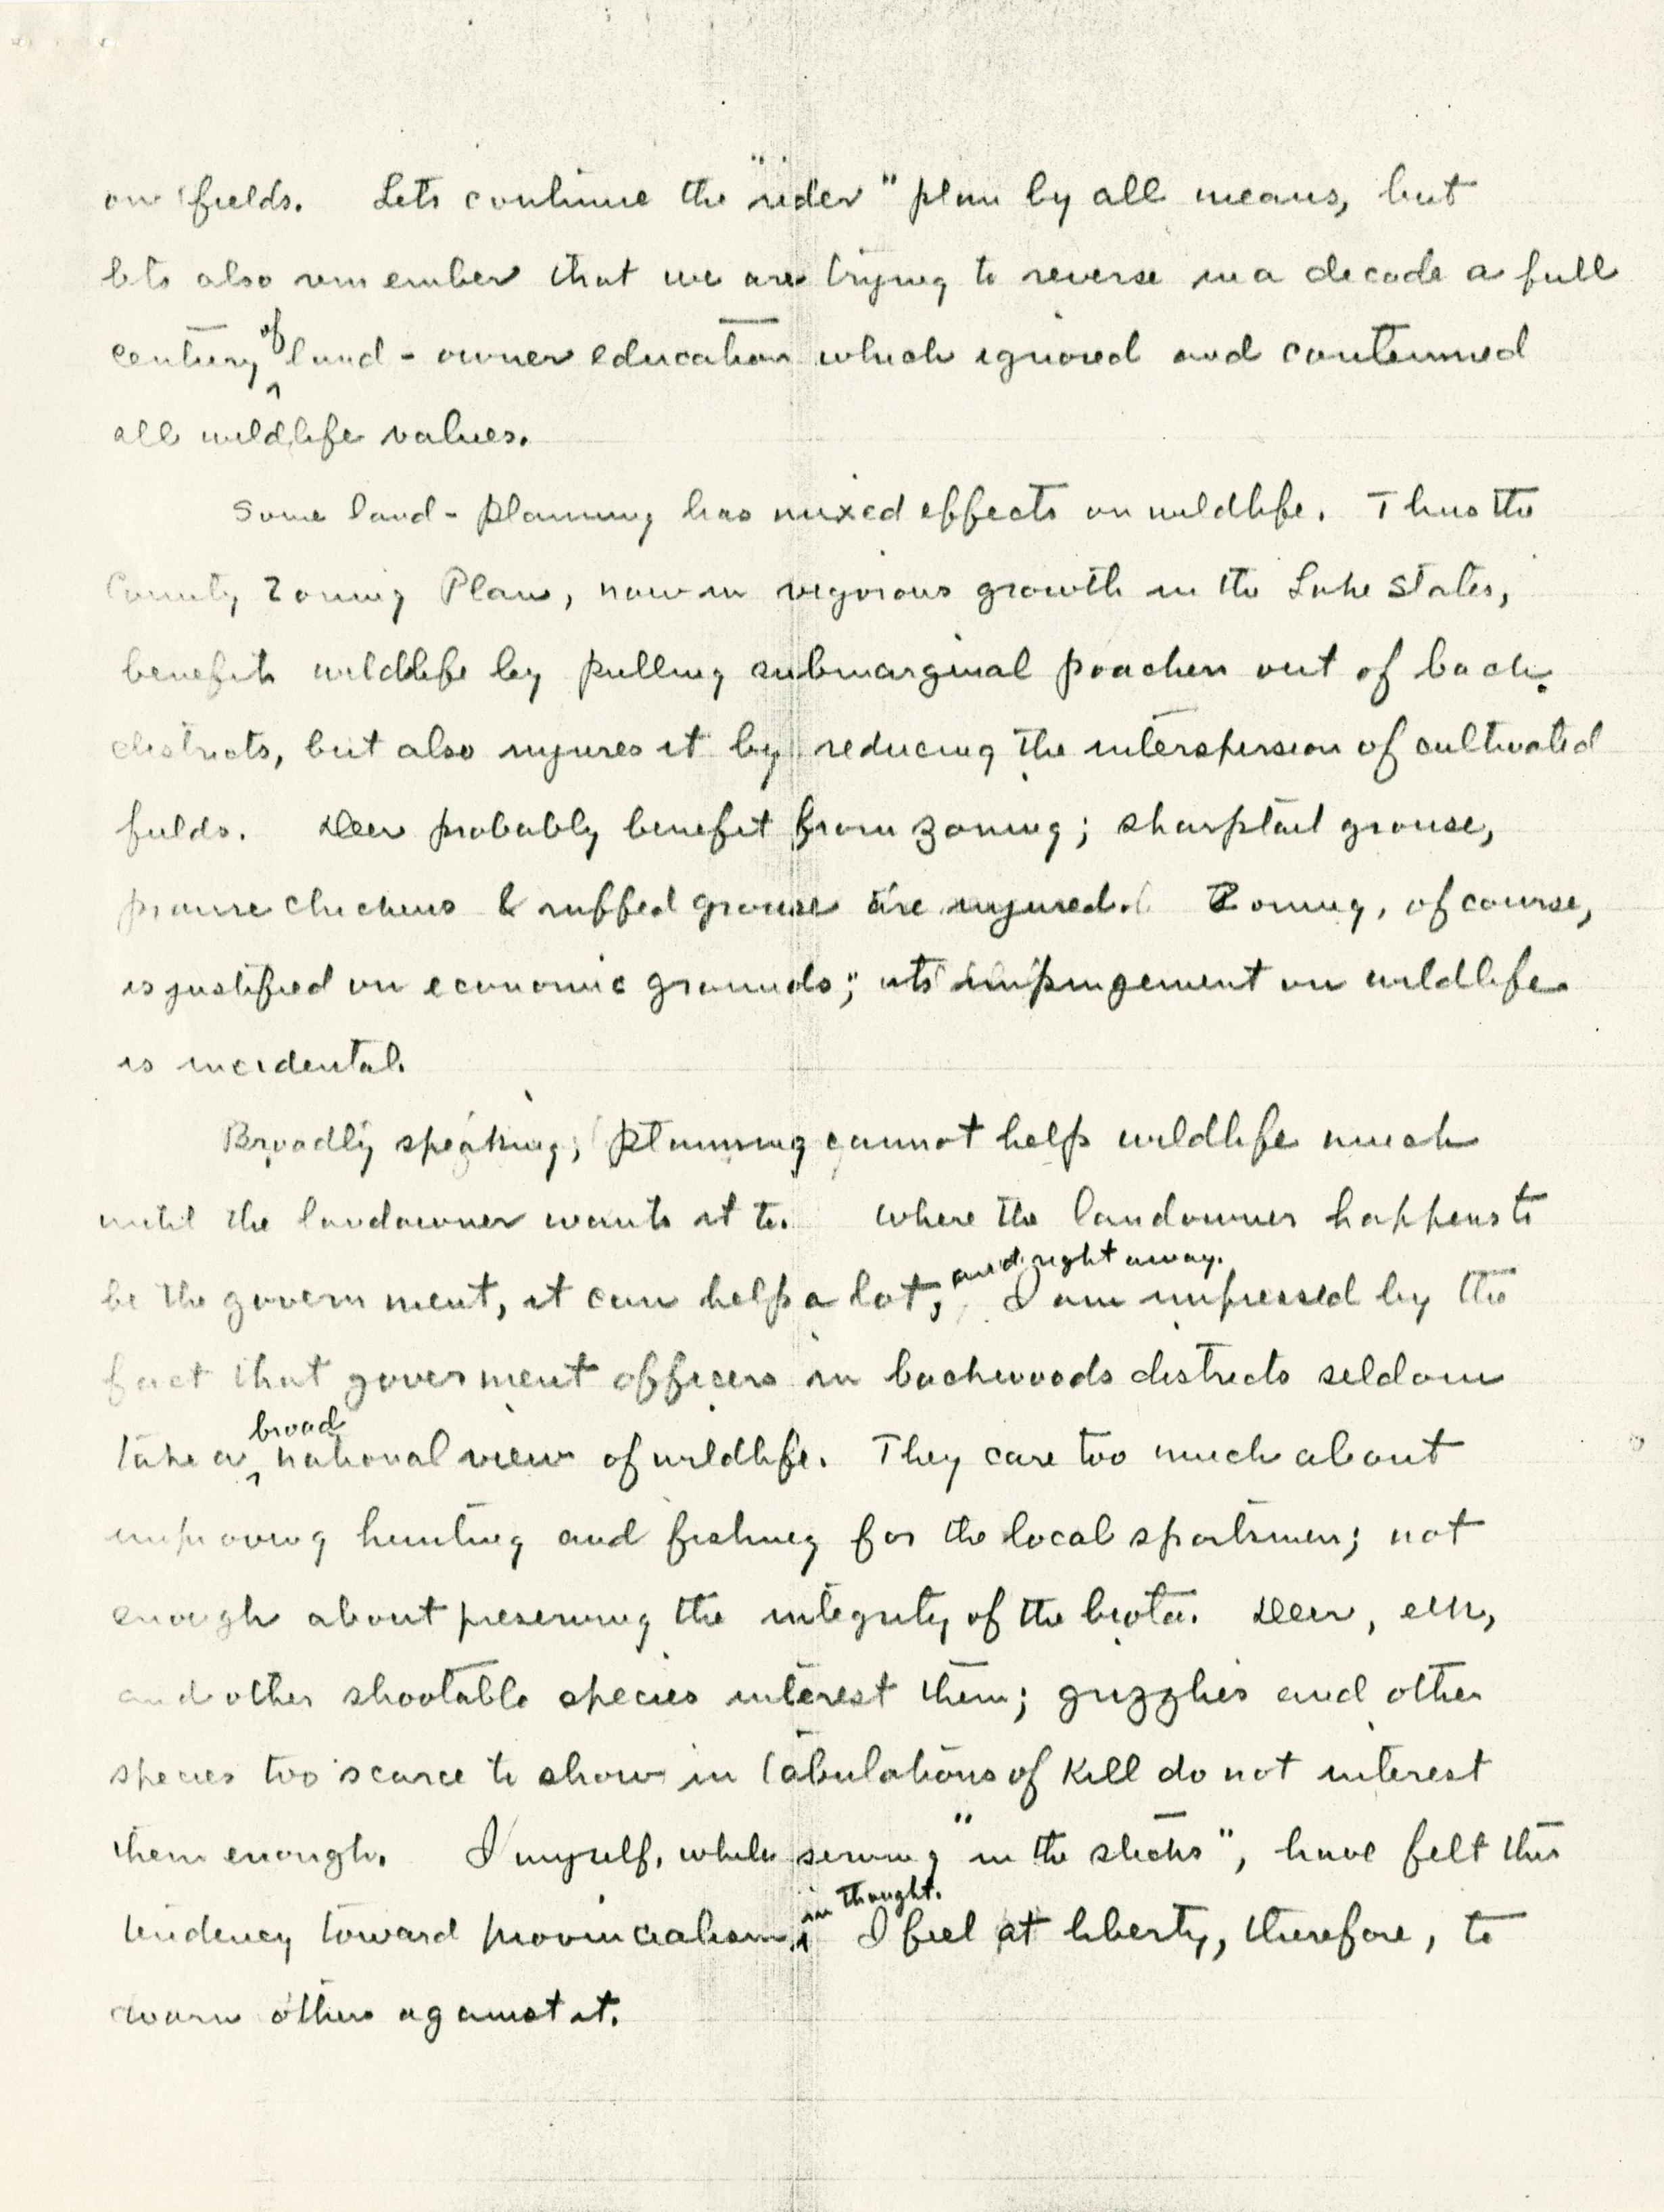 on fields. Lets continue the "rider" plan by all means, but
lets also remember that we are trying to reverse in a decade a full
century of land-owner education which ignored and contemned
all wildlife values.
Some land-planning has mixed effects on wildlife. Thus the
County Zoning Plan, now in vigorous growth in the Lake States,
benefits wildlife by pulling submarginal poachers out of back
districts, but also injures it by reducing the interspersion of cultivated
fields. Deer probably benefit from zoning; sharptail grouse,
prairie chickens & ruffed grouse are injured. Zoning, of course,
is justified on economic grounds; its impingement on wildlife
is incidental.
Broadly speaking, planning cannot help wildlife much
until the landowner wants it to. Where the landowner happens to
be the government, it can help a lot, and right away. I am impressed by the
fact that goverment officers in backwoods districts seldom
take a broad national view of wildlife. They care too much about
improving hunting and fishing for the local sportsmen; not
enough about preserving the integrity of the biota. Deer, elk,
and other shootable species interest them; grizzlies and other
species too scarce to show in tabulations of kill do not interest
them enough. I myself, while serving "in the sticks", have felt this
tendency toward provincialism in thought. I feel at liberty, therefore, to
warn others against it.